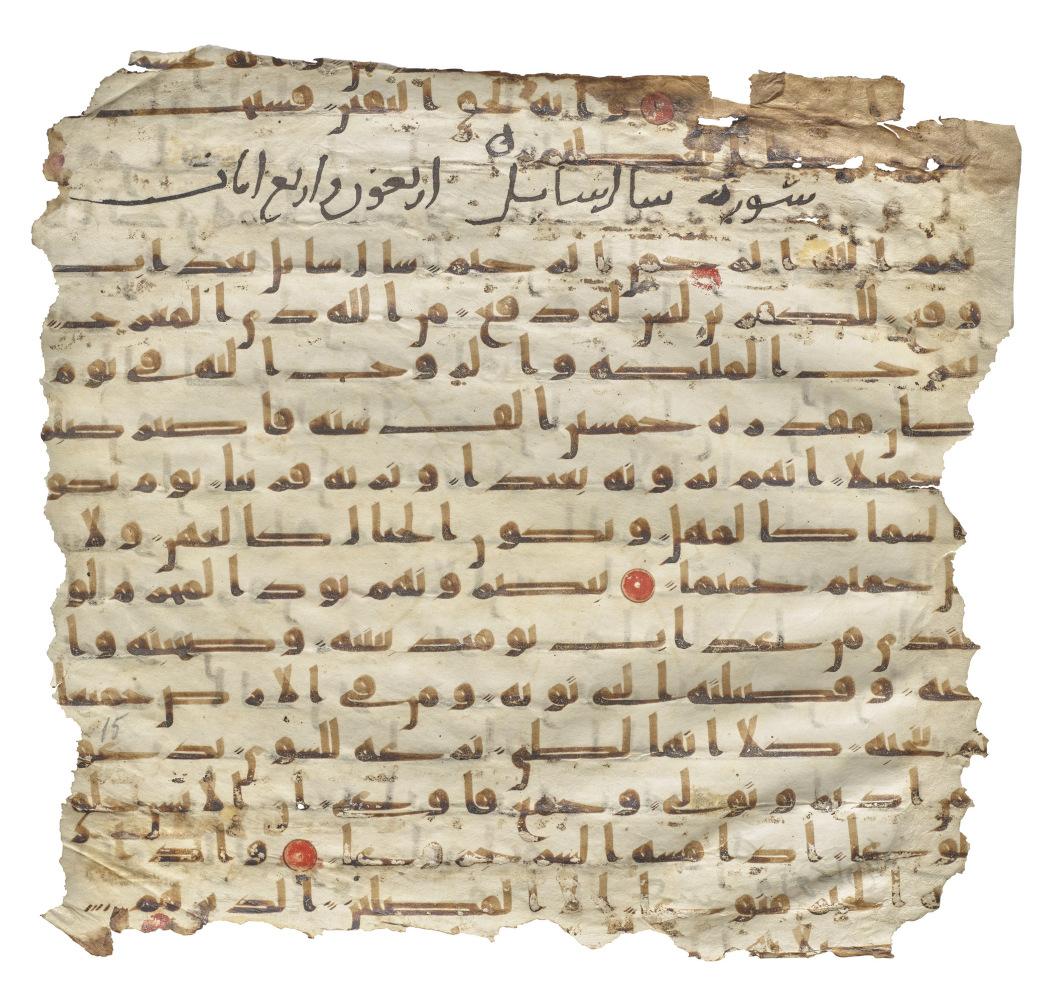 وانه لحق اليقين فسبح
سورة سال سايل اربعون واربع ايات
بسم الله الرحمن الرحيم سال سايل بعذاب
وقع للكفرين ليس له دفع من الله ذي المعرج
تعرج الملئكة والروح اليه في يوم
كان مقدره خمسين الف سنة فاصبر صبرا
جميلا انهم يرونه بعيدا ونريه قريبا يوم تكو
ن السما كالمهل وتكون الجبال كالعهن ولا
يسل حميم حميما يبصرونهم يود المجرم لو
يفتدي من عذاب يومئذ ببنيه وصحبته وا
خيه وفصيلته التي تويه ومن في الارض جميعا
ثم ينجيه كلا انها لظى نزعة للشوى تدعو
من ادبر وتولى وجمع فاوعى ان الانسن خلق
هلوعا اذا مسه الشر جزوعا واذا
مسه الخير منوعا الا المصلين الذين هم